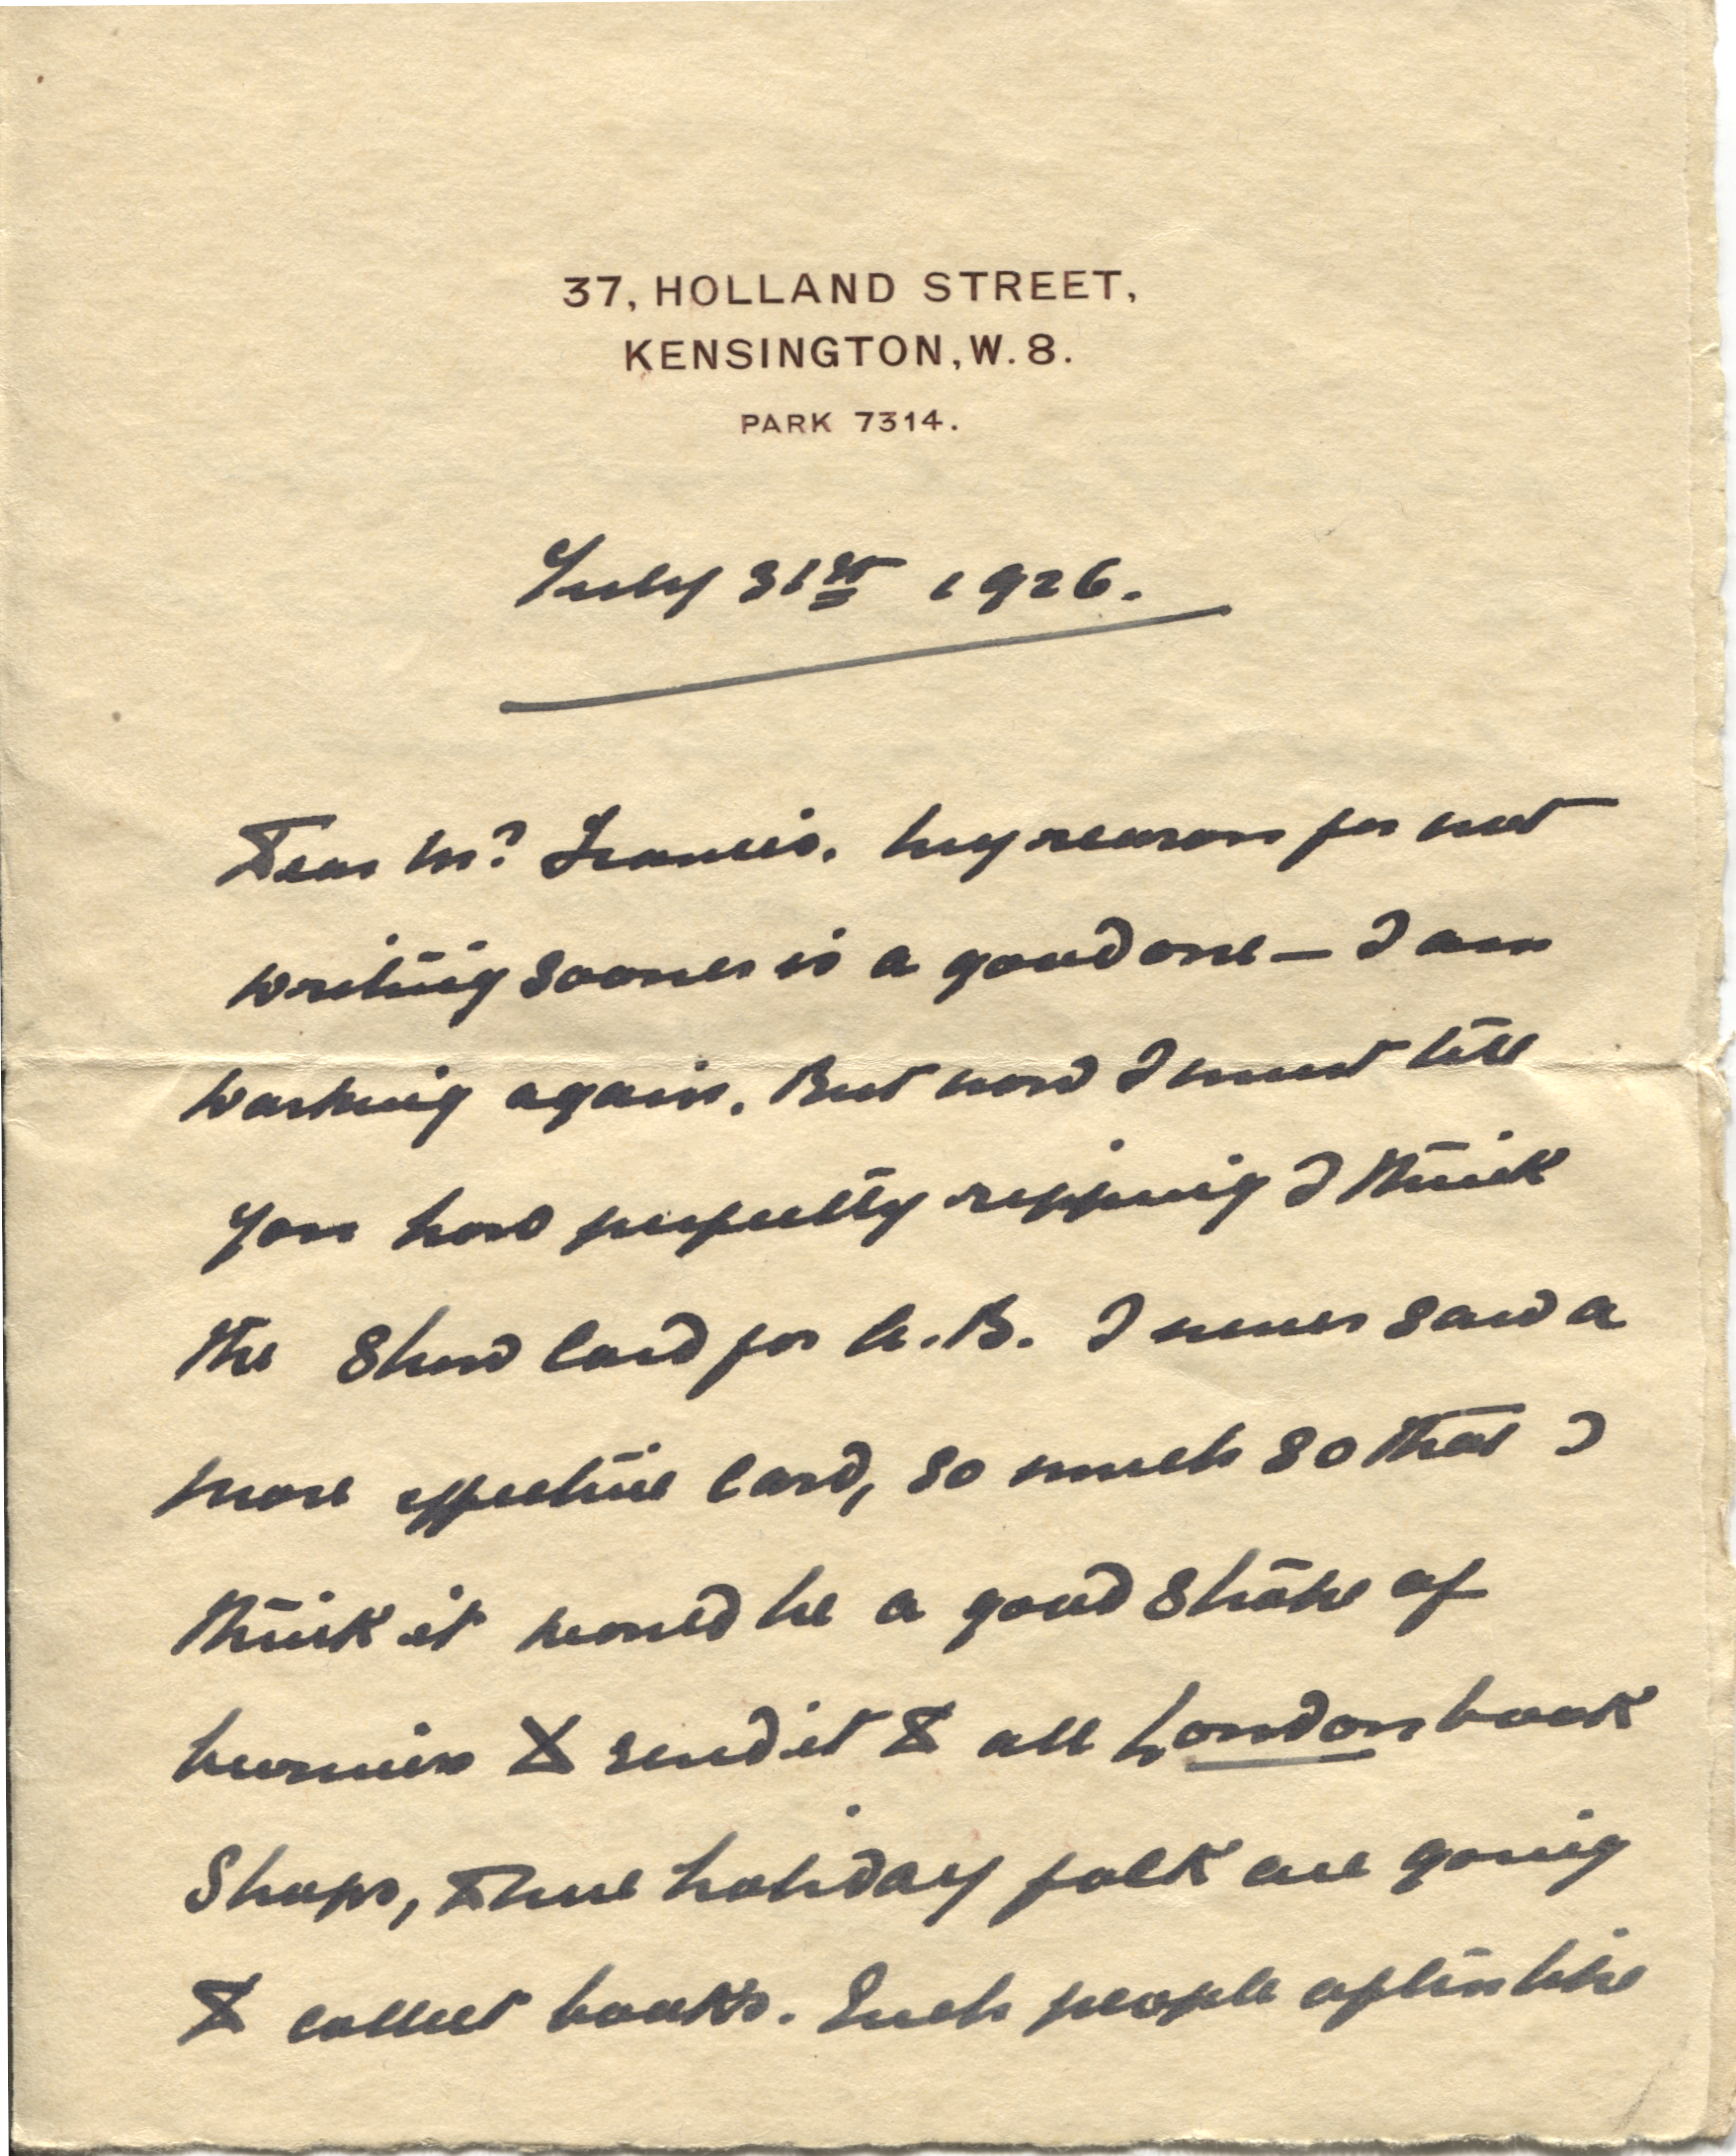 37, HOLLAND STREET,
KENSINGTON, W. 8.
PARK 7314.
July 31st 1926.
Dear Mr. Francis. My reason for not
writing sooner is a good one – I am
working again. But now I must tell
you how perfectly ripping I think
the Show Card for A.B. I never saw a
more effective card, so much so that I
think it would be a good stroke of
business to send it to all London book
Shops, holiday folk are going
to collect books. Such people often like